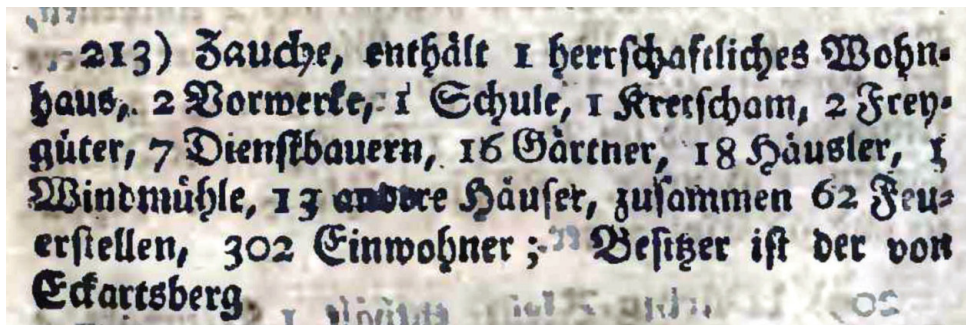 213) Zauche, enthält 1 herrschaftliches Wohn-
haus, 2 Vorwerke, 1 Schule, 1 Kretscham, 2 Frey-
güter, 7 Dienstbauern, 16 Gärtner, 18 Häusler, 1
Windmühle, 13 andere Häuser, zusammen 62 Feu-
erstellen, 302 Einwohner; Besitzer ist der von
Eckartsberg